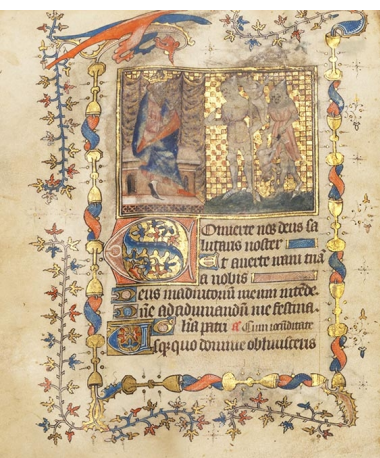 Conuerte nos deus sa
lutaris noster
Et auerte iram tuā
a nobis
Deus in adiutoriū meum intēde
Dn̄e ad adiuuandū me festina
Gl̄ia patri
Usq̄quo domine obliuisceris